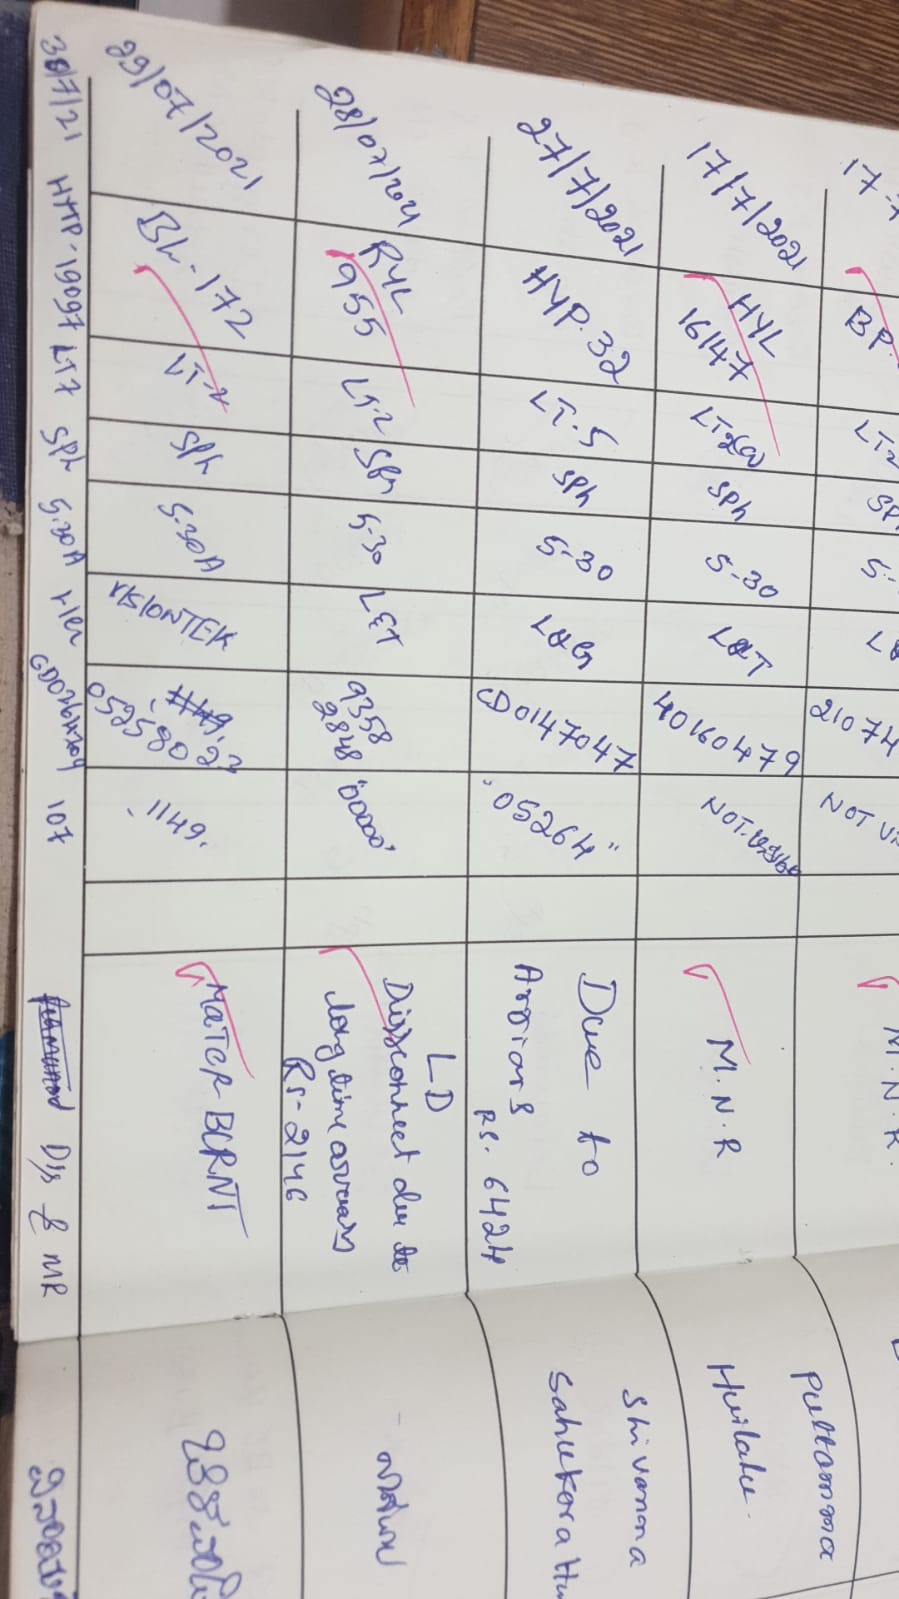 17-7
BP.
LT2
SPh
5-
21074
NOT Vi
M.N.R.
17/7/2021
HYL
16147
LT2(a)
SPh
5-30
L&T
40160479
NOT.
M.N.R
Puttamma
Huilalu.
27/7/2021
HYP.32
LT.5
SPh
5-30
L&G
CD0147047
"05264"
Due to
Arriars
RS. 6424
Shivanna
Sahukara Hu
28/07/2021
RYL
955
LT-2
SPh
5-30
L&T
9358
2848
"00000"
LD
Dissconnect due to
long time arrears
Rs-2146
29/07/2021
BL-172
LT-2
SPh
5.30A
VISIONTEK
05258023
.1149.
MATER BURNT
30/7/21 HYP-19097 LT7 SPh 5.30A 107 Dis & MR